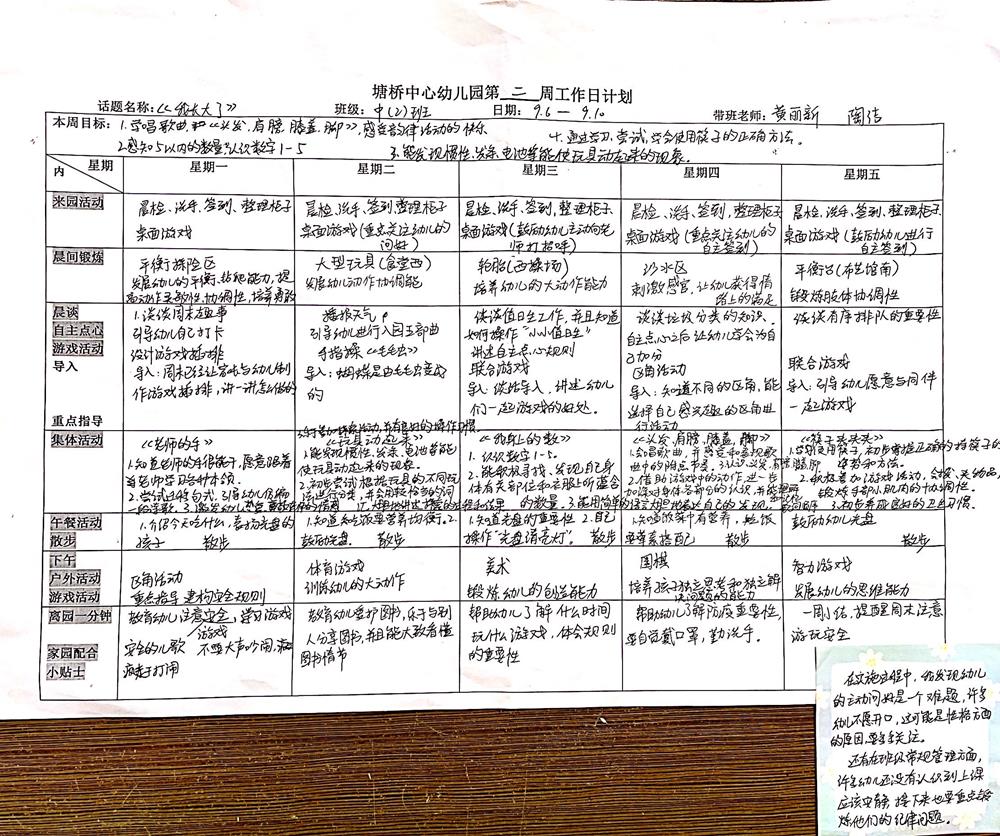 塘桥中心幼儿园第 二 周工作日计划
话题名称：《我长大了》 班级：中(2)班 日期：9.6 — 9.10 带班老师：黄丽新 陶洁
本周目标：1.学唱歌曲和《头发,肩膀,膝盖,脚》,感受韵律活动的快乐
4.通过学习,尝试学会使用筷子的正确方法。
2.感知5以内的数量,认识数字1-5
3.能发现惯性、发条、电池等能使玩具动起来的现象。
星期
内
星期一 星期二 星期三 星期四 星期五
来园活动
晨检、洗手、签到、整理柜子
桌面游戏
晨检、洗手、签到、整理柜子
桌面游戏(重点关注幼儿的
问好)
晨检、洗手、签到、整理柜子
桌面游戏(鼓励幼儿主动向老
师打招呼)
晨检、洗手、签到、整理柜子
桌面游戏(重点关注幼儿的
自主签到)
晨检、洗手、签到、整理柜子
桌面游戏(鼓励幼儿进行
自主签到)
晨间锻炼
平衡探险区
发展幼儿的平衡、钻爬能力,提
高动作灵敏性,协调性,培养勇敢
大型玩具(食堂西)
发展幼儿动作协调能
轮胎(西操场)
培养幼儿的大动作能力
沙水区
刺激感官,让幼儿获得情
绪上的满足
平衡台(布艺馆南)
锻炼肢体协调性
晨谈
自主点心
游戏活动
导入
重点指导
1.谈谈周末趣事
引导幼儿自己打卡
设计游戏插排
导入：周末已经让家长与幼儿制
作游戏插排,讲一讲怎么做的
播报天气
引导幼儿进行入园五部曲
手指操《毛毛虫》
导入：蝴蝶是由毛毛虫变成
的
谈谈值日生工作,并且知道
如何操作“小小值日生”
讲述自主点心规则
联合游戏
导：谈话导入,讲述幼儿
们一起游戏的好处。
谈谈垃圾分类的知识、
自主点心之后让幼儿学会为自
己加分
区角活动
导入：知道不同的区角,能
选择自己感兴趣的区角进
行活动
谈谈有序排队的重要性
联合游戏
导入：引导幼儿愿意与同伴
一起游戏
集体活动
《老师的手》
1.知道老师的手很能干,愿意跟着
老师学习各种本领。
《玩具动起来》
1.能发现惯性、发条、电池等能
使玩具动起来的现象。
2.初步尝试根据玩具的不同玩
法进行分类,
《我身上的数》
1.认识数字1-5。
2.能积极寻找、发现自己身
体有关部位和衣服上所蕴含
的数量。3.能用简单的语言大胆地表达自己的发现。
《头发,肩膀,膝盖,脚》
1.学唱歌曲,并感受和表现歌
曲中的附点节奏。
2.借助游戏中的动作,进一步
加深对身体各部分的认识,并能
《筷子头头头》
1.学习使用筷子,初步掌握正确的持筷子的
姿势和方法。
2.积极参加游戏活动,会探、夹物品,
锻炼手部小肌肉的协调性。
3.初步养成良好的卫生习惯。
午餐活动
散步
1.介绍今天吃什么,喜扬光盘的
孩子 散步
1.知道喝浓汤营养均衡。2.
鼓励光盘。 散步
1.知道光盘的重要性 2.自己
操作“光盘消亮灯”。 散步
1.知道浓菜中有营养,吃饭
要荤素搭配 散步
鼓励幼儿光盘
散步
下午
户外活动
游戏活动
区角活动
重点指导 建构安全规则
体育游戏
训练幼儿的大动作
美术
锻炼幼儿的创造能力
围棋
培养孩子独立思考和独立解
决问题的能力
智力游戏
发展幼儿的思维能力
离园一分钟
家园配合
小贴士
教育幼儿注意安全,学习游戏
游戏
安全的儿歌 不要大声吵闹,疯
疯走打闹
教育幼儿爱护图书,乐于与别
人分享图书,并且能大致看懂
图书情节
帮助幼儿了解什么时间
玩什么游戏,体会规则
的重要性
帮助幼儿了解防疫重要性,
要自觉戴口罩,勤洗手。
一周小结,提醒周末注意
游玩安全
在实施过程中,我发现幼儿
的主动问好是一个难题,许多
幼儿不愿开口,这可能是性格方面
的原因,要多多关注。
还有在班级常规管理方面,
许多幼儿还没有认识到上课
应该安静,接下来也要重点锻
炼他们的纪律问题。